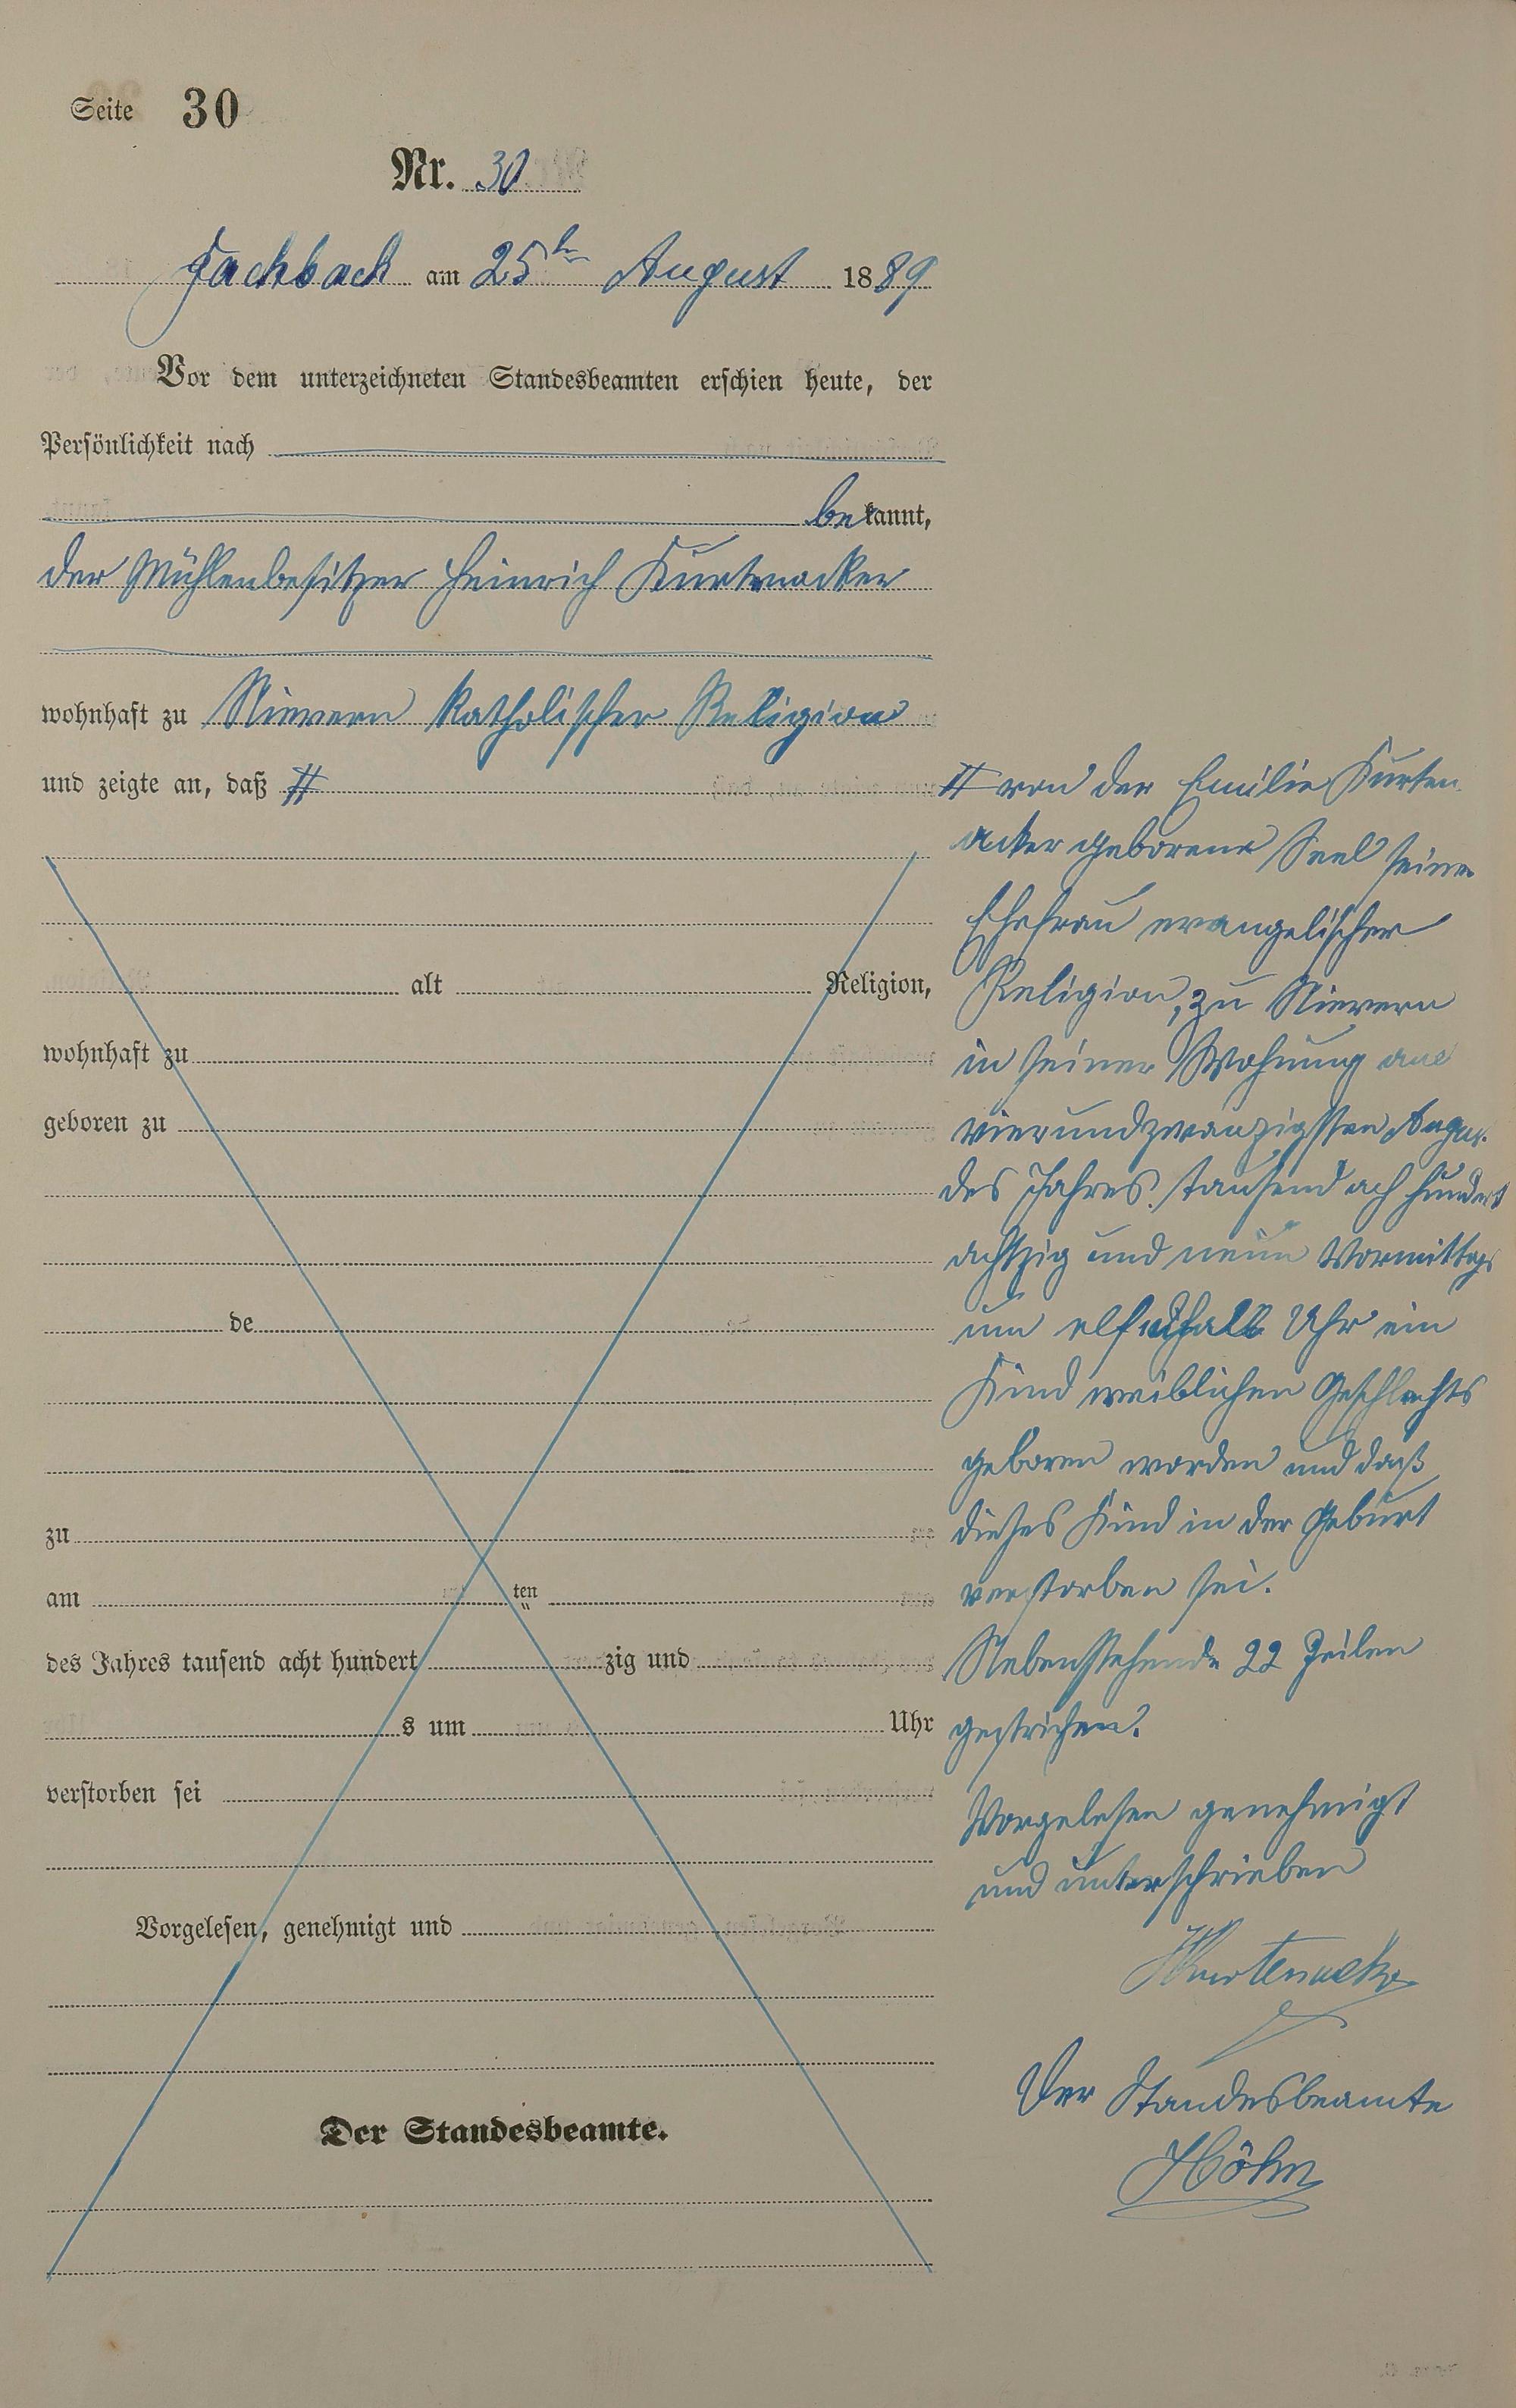 Seite 30
Nr. 30
Fachbach am 25ten August 1889
Vor dem unterzeichneten Standesbeamten erschien heute, der
Persönlichkeit nach
bekannt,
der Mühlenbesitzer Heinrich Kurtenacker
wohnhaft zu Nievern katholischer Religion
und zeigte an, daß #
alt Religion,
wohnhaft zu
geboren zu
de
zu
am ten
des Jahres tausend acht hundert zig und
s um Uhr
verstorben sei
Vorgelesen, genehmigt und
Der Standesbeamte.
# von der Emilie Kurten
acker geborene Seel seiner
Ehefrau evangelischer
Religion, zu Nievern
in seiner Wohnung am
vierundzwanzigsten Augus.
des Jahres tausend ach hundert
achtzig und neun Vormittags
um elf Uhr ein
Kind weiblichen Geschlechts
geboren worden und daß
dieses Kind in der Geburt
verstorben sei.
Nebenstehende 22 Zeilen
gestrichen.
Vorgelesen genehmigt
und unterschrieben
HKurtenacker
Der Standesbeamte
Höhn